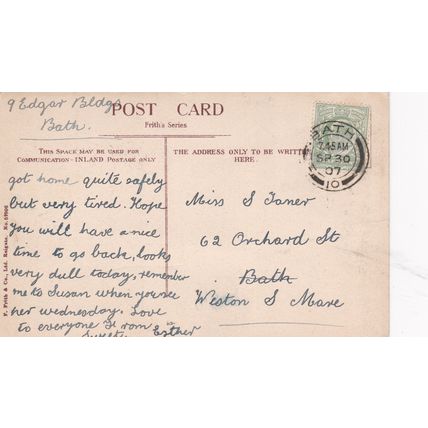 9 Edgar Bldgs
Bath.
POST CARD
Frith's Series
THIS SPACE MAY BE USED FOR
COMMUNICATION - INLAND POSTAGE ONLY
THE ADDRESS ONLY TO BE WRITTEN
HERE.
BATH
7.45 AM
SP 30
07
10
got home quite safely
but very tired. Hope
you will have a nice
time to go back, looks
very dull today, remember
me to Susan when you see
her wednesday. Love
to everyone From
Esther
Miss S Taner
62 Orchard St
Bath
Weston S Mare
F. Frith & Co., Ltd. Reigate. No.